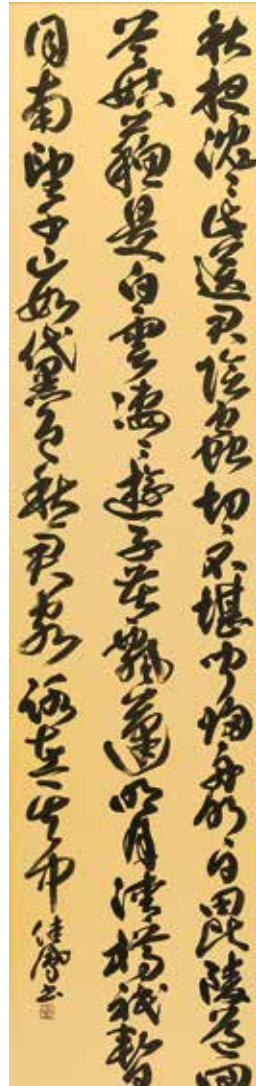 秋夜沈〻此送君陰蟲切〻不堪聞歸舟明日毘陵道回
首姑蘇是白雲淒〻遊子若飄蓬明月清樽祗暫
同南望千山如黛色愁君客路在其中 佳書